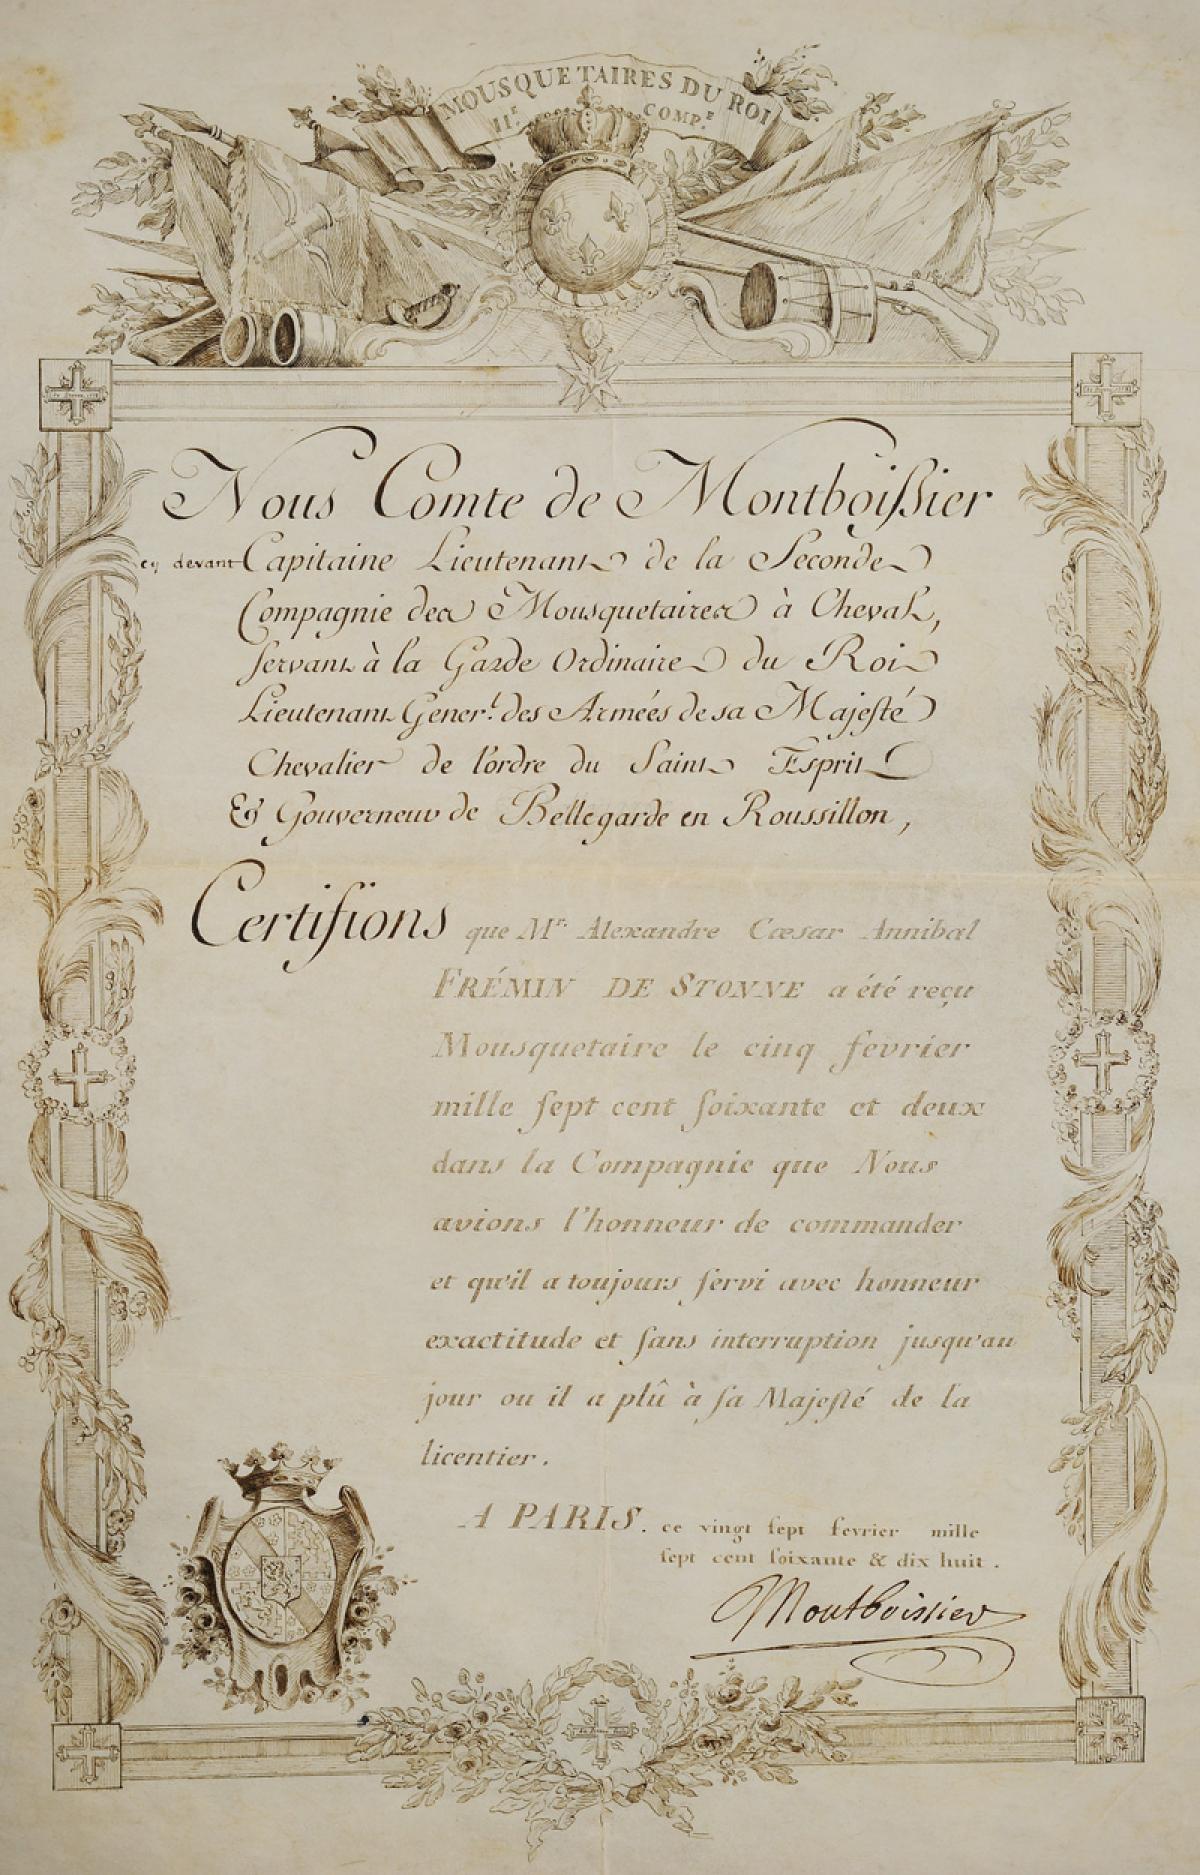 MOUSQUETAIRES DU ROI
II.E COMP.E
Nous Comte de Montboissier
cy devant Capitaine Lieutenant de la Seconde
Compagnie des Mousquetaires à Cheval,
servant à la Garde Ordinaire du Roi
Lieutenant Gener.l des Armées de sa Majesté
Chevalier de l'ordre du Saint Esprit
& Gouverneur de Bellegarde en Roussillon,
Certifions que Mr. Alexandre Cæsar Annibal
FRÉMIN DE STONNE a été reçu
Mousquetaire le cinq fevrier
mille sept cent soixante et deux
dans la Compagnie que Nous
avions l'honneur de commander
et qu'il a toujours servi avec honneur
exactitude et sans interruption jusqu'au
jour ou il a plû à sa Majesté de la
licentier.
A PARIS. ce vingt sept fevrier mille
sept cent soixante & dix huit.
Montboissier